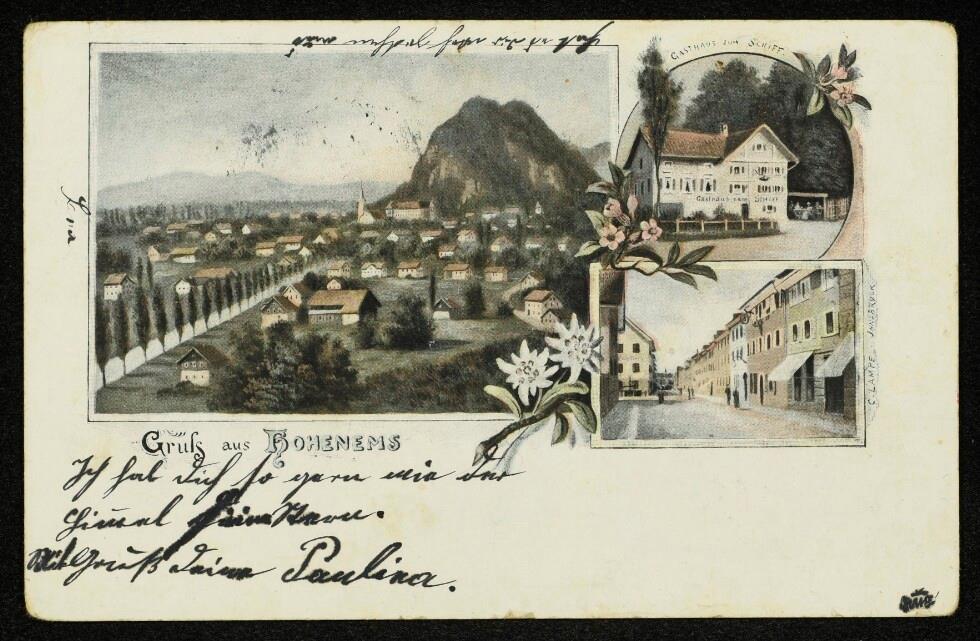 GASTHAUS ZUM SCHIFF.
Gasthaus zum Schiff
C. LAMPE INNSBRUCK
Gruß aus HOHENEMS
Ich hab dich so gern wie der
Himmel seine Stern.
Mit Gruß deine Paulina.